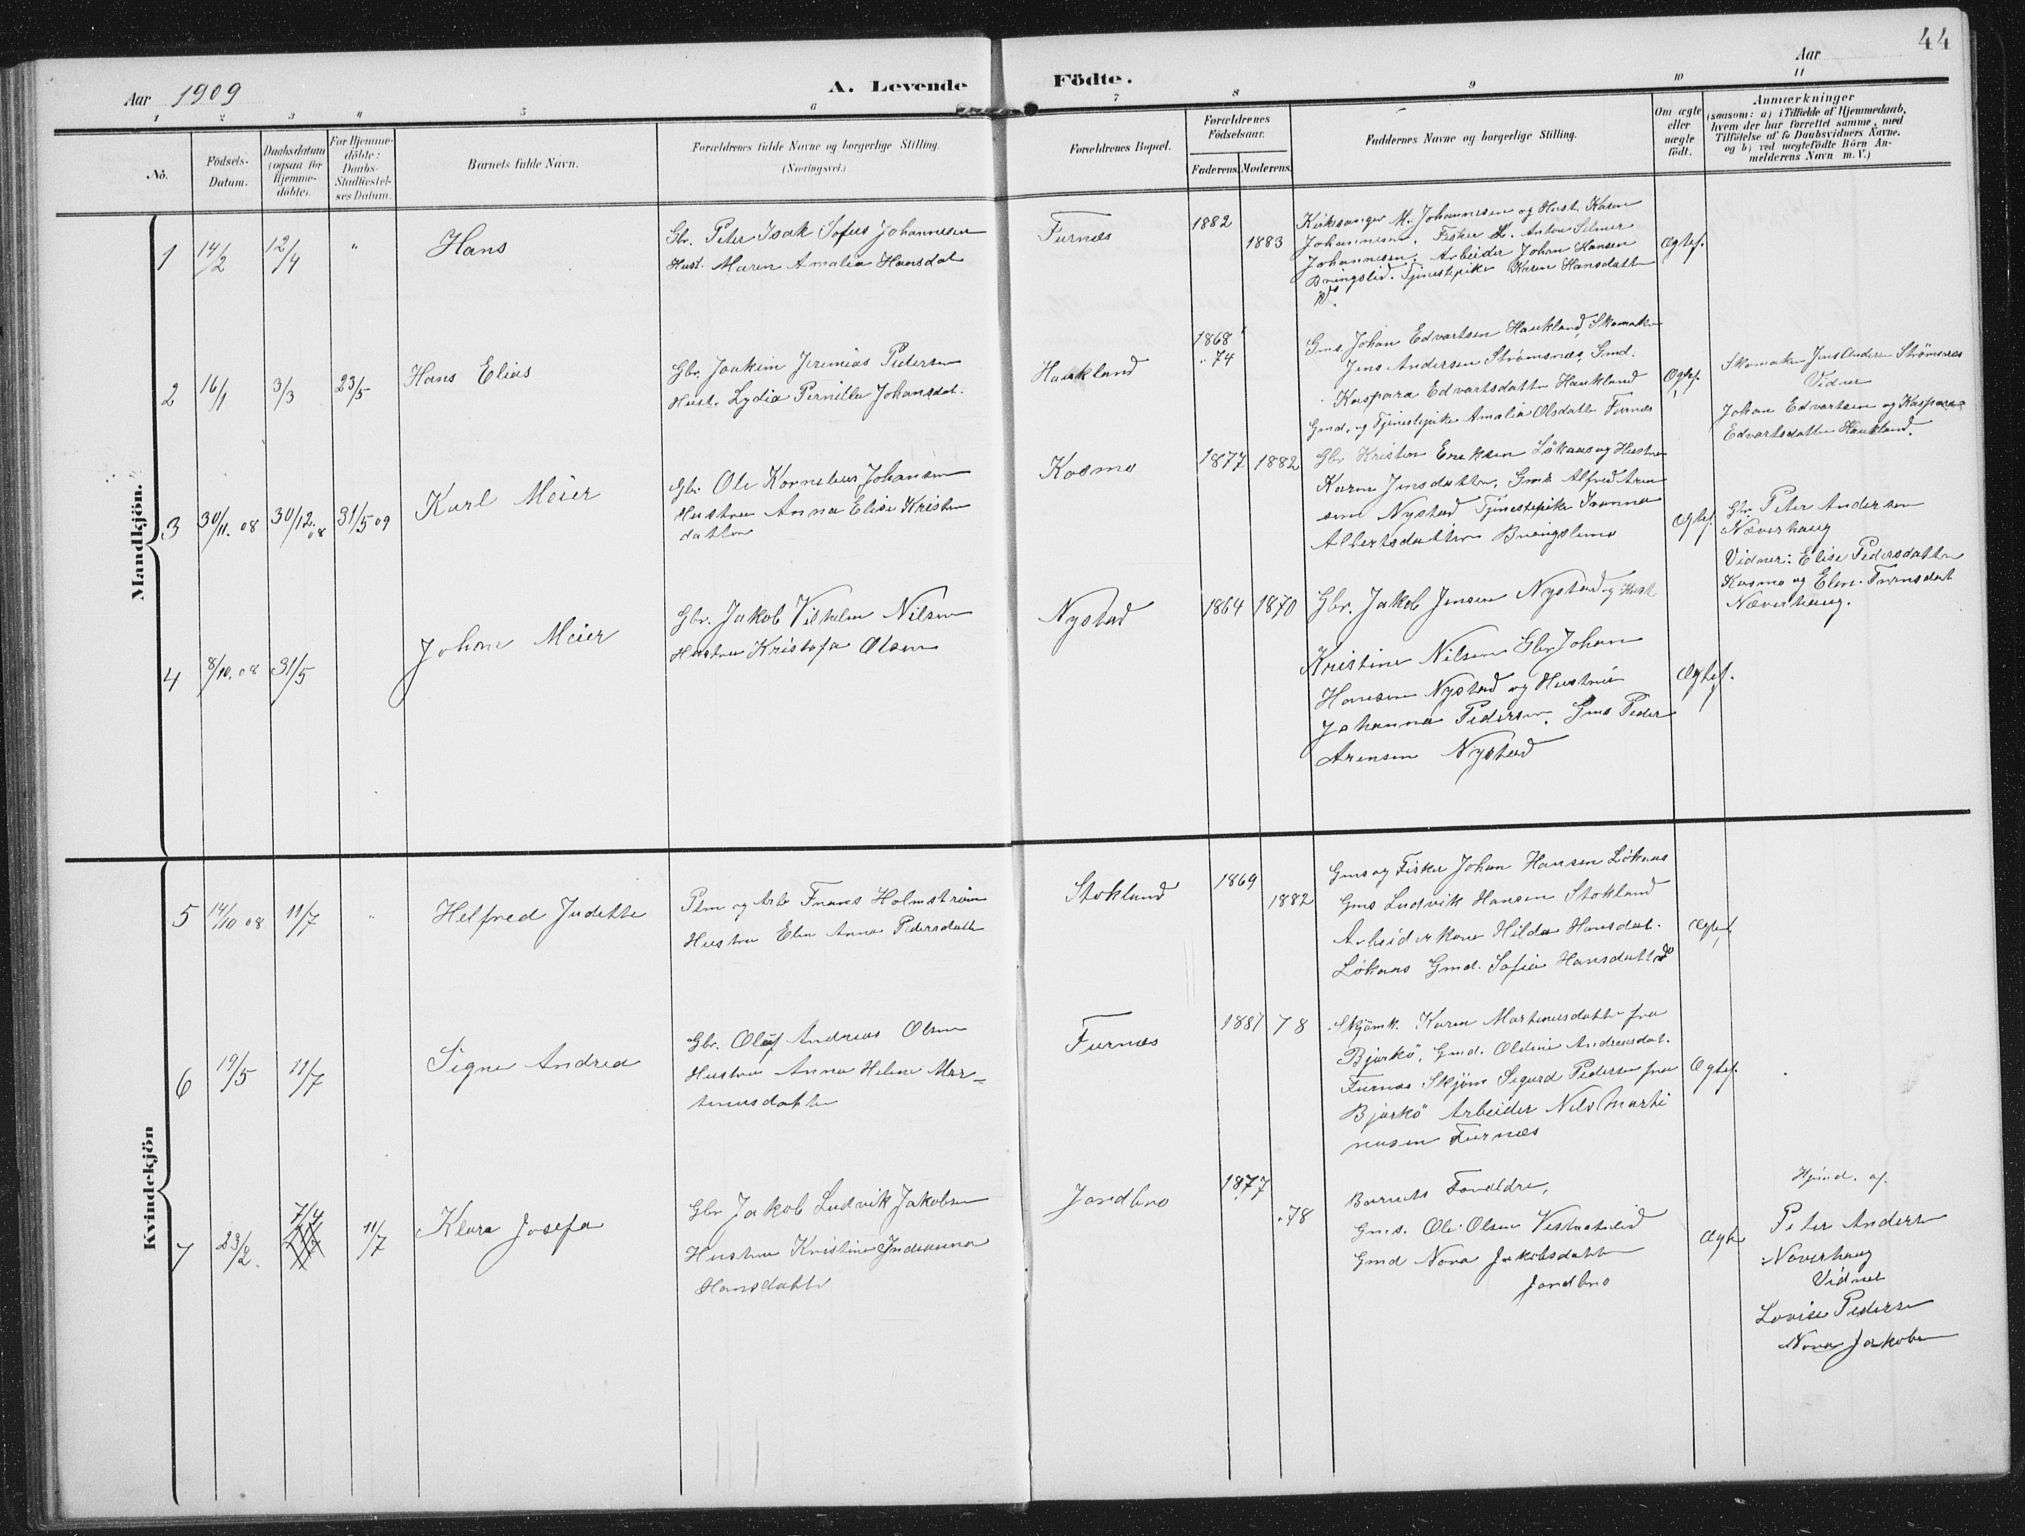 44
Aar 1909
A. Levende
Födte.
Aar
1 2 3 4 5 6 7 8 9 10 11
No.
Födsels-
Datum.
Daabsdatum
(ogsaa for
Hjemme-
døbte).
For Hjemme-
döbte:
Daabs-
Stadfæstel-
ses Datum.
Barnets fulde Navn.
Forældrenes fulde Navne og borgerlige Stilling.
(Næringsvei.)
Forældrenes Bopæl.
Forældrenes
Födselsaar.
Faderens. Moderens.
Faddernes Navne og borgerlige Stilling.
Om ægte
eller
uægte
födt.
Anmærkninger
(saasom: a) i Tilfælde af Hjemmedaab,
hvem der har forrettet samme, med
Tilföielse af to Daabsvidners Navne,
og b) ved uægtefödte Börn An-
melderens Navn m. V.)
Mandkjön.
1 14/2 12/4 "
Hans
Gbr. Peter Isak Sofus Johannesen
Hust. Maren Amalia Hansdat
Furnæs
1882
1883
Kirkesanger M. Johannesen og Hust. Karen
Johannesen. Fisker Anton Selmer
Johannesen, Arbeider Johan Hansen
Bringslid. Tjenestepike Karen Hansdatter
Ægtef.
2 16/1 3/3 23/5
Hans Elias
Gbr. Joakim Jeremias Pedersen
Hust. Lydia Pernilla Johansdat.
Haukland
1868
" 74
Gms. Johan Edvartsen Haukland, Skomaker
Jens Andersen Strømsnæs, Gmd.
Kaspara Edvartsdatter Haukland
Gmd. og Tjenestepike Amalia Olsdatter Furnæs
Ægtef.
Skomaker Jens Andersen Strømsnæs
Vidner
Johan Edvartsen og Kaspara
Edvartsdatter Haukland.
3 30/11. 08 30/12. 08 31/5 09
Karl Meier
Gbr. Ole Kornelius Johansen
Hustru Anna Elise Kristen
datter
Kosmo
1877 1882
Gbr. Kristen Eriksen Løkaas og Hustru
Karen Jensdatter, Gms. Alfred Aren
sen Nystad Tjenestepike
Albertsdatter Bringslimo
Ægtef.
Gbr. Peter Andersen
Næverhaug
Vidner: Elise Pedersdatter
Kosmo og Elen
Næverhaug.
4 8/10. 08 31/5
Johan Meier
Gbr. Jakob Vilhelm Nilsen
Hustru Kristofa Olsen
Nystad
1864 1870
Gbr. Jakob Jensen Nystad og Hust
Kristine Nilsen Gbr Johan
Hansen Nystad og Hustru
Johanna Pedersen. Gms Peder
Arensen Nystad
Ægtef.
Kvindekjön
5 14/10 08 11/7 "
Helfred Judette
Plm og Arb Frans Holmstrøm
Hustru Elen Anna Pedersdatter
Stokland
1869
1882
Gms og Fisker Johan Hansen Løkaas
Gms Ludvik Hansen Stokland
Arbeiderkone Hilda Hansdat.
Løkaas Gmd. Sofie Hansdatter do
Ægtef.
6 19/5 11/7
Signe Andrea
Gbr. Oluf Andreas Olsen
Hustru Anna Helene Mar-
tinusdatter
Furnæs
1881 78
Skjømk. Karen Martinusdatter fra
Bjarkö, Gmd. Oldine Andreasdat.
Furnæs Skjøm Sigurd Pedersen fra
Bjarkö Arbeider Nils Marti
nusen Furnæs
Ægtef.
7 23/2. 7/4 11/7
Klara Josefa
Gbr Jakob Ludvik Jakobsen
Hustru Kristine Indianna
Hansdatter
Jordbro
1877
" 78
Barnets Forældre,
Gms. Ole Olsen
Gmd Nora Jakobsdatter
Jordbro
Ægte
Hjemd. af.
Peter Andersen
Næverhaug
Vidner
Lovise Pedersen
Nora Jakobsen